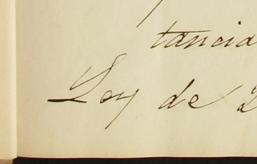 tancid
Loy de